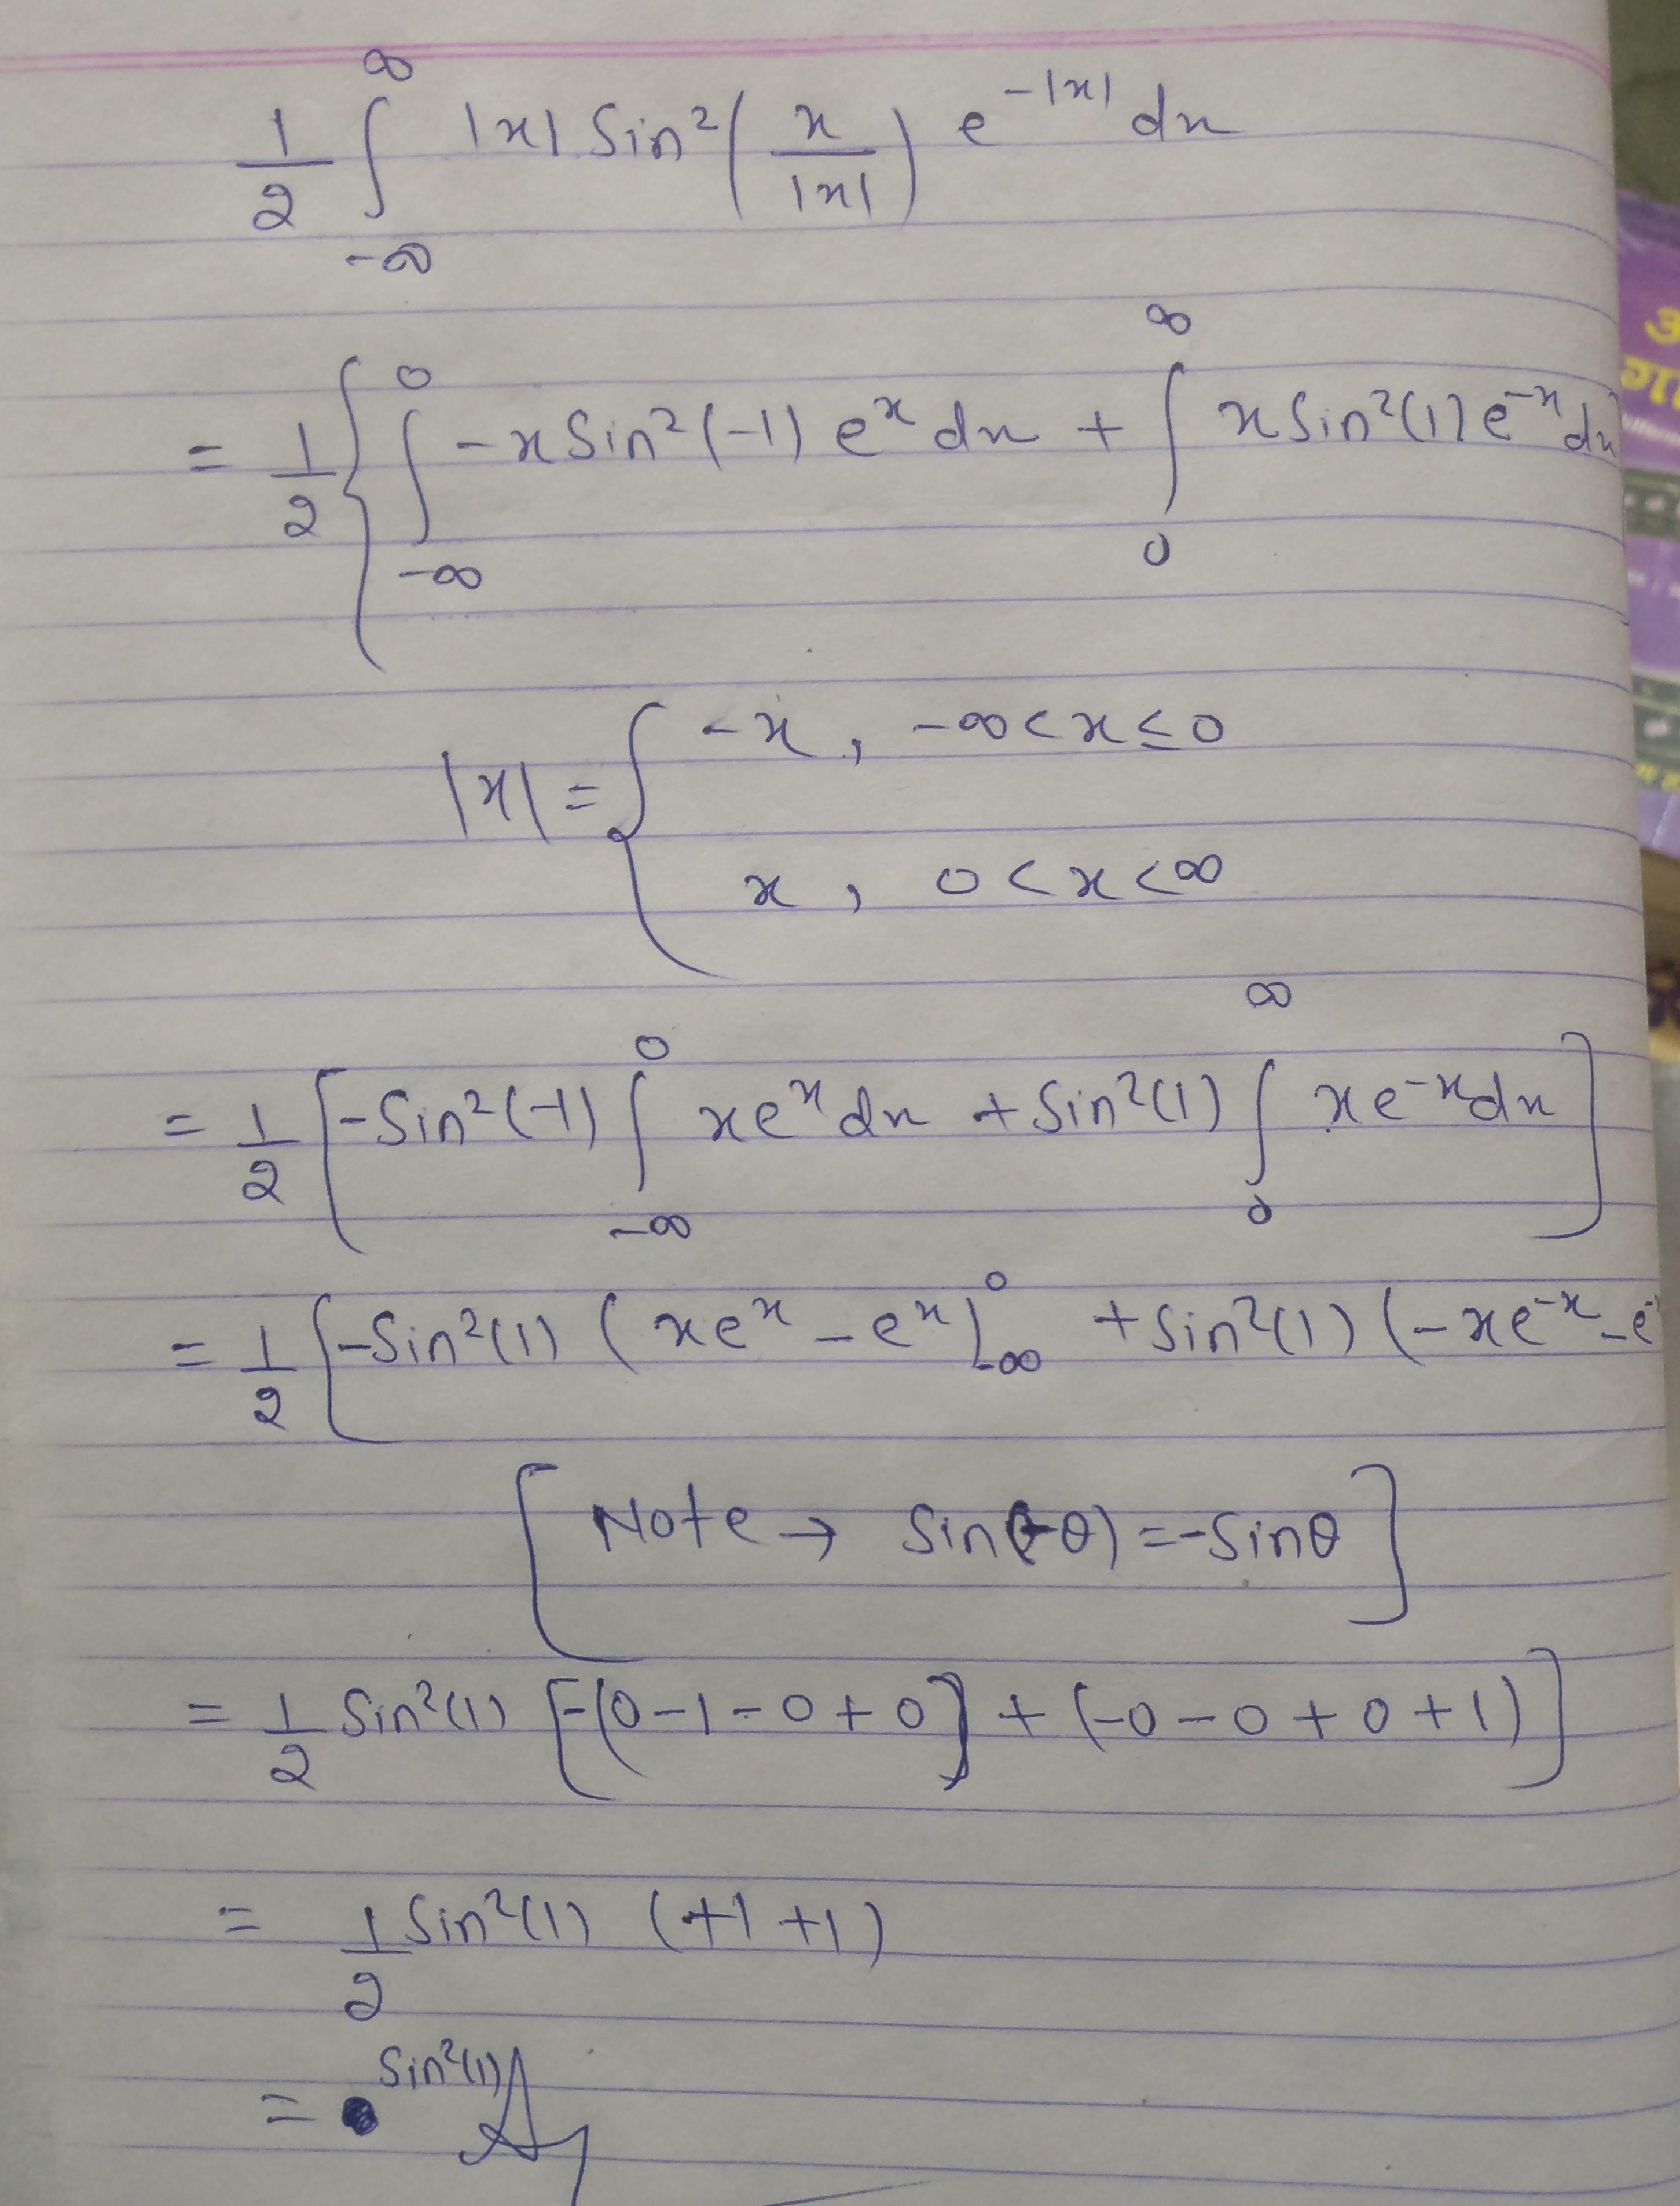 1/2 ∫_{-∞}^{∞} |x| Sin²(x/|x|) e^{-|x|} dx
= 1/2 { ∫_{-∞}^{0} -x Sin²(-1) e^x dx + ∫_{0}^{∞} x Sin²(1) e^{-x} dx
|x| = { -x, -∞ < x ≤ 0
x, 0 < x < ∞
= 1/2 [ -Sin²(-1) ∫_{-∞}^{0} x e^x dx + Sin²(1) ∫_{0}^{∞} x e^{-x} dx ]
= 1/2 [ -Sin²(1) (x e^x - e^x)_{-∞}^{0} + Sin²(1) (-x e^{-x} - e
[Note → Sin(-θ) = -Sinθ]
= 1/2 Sin²(1) [-(0-1-0+0] + (-0-0+0+1)]
= 1/2 Sin²(1) (+1+1)
= Sin²(1)